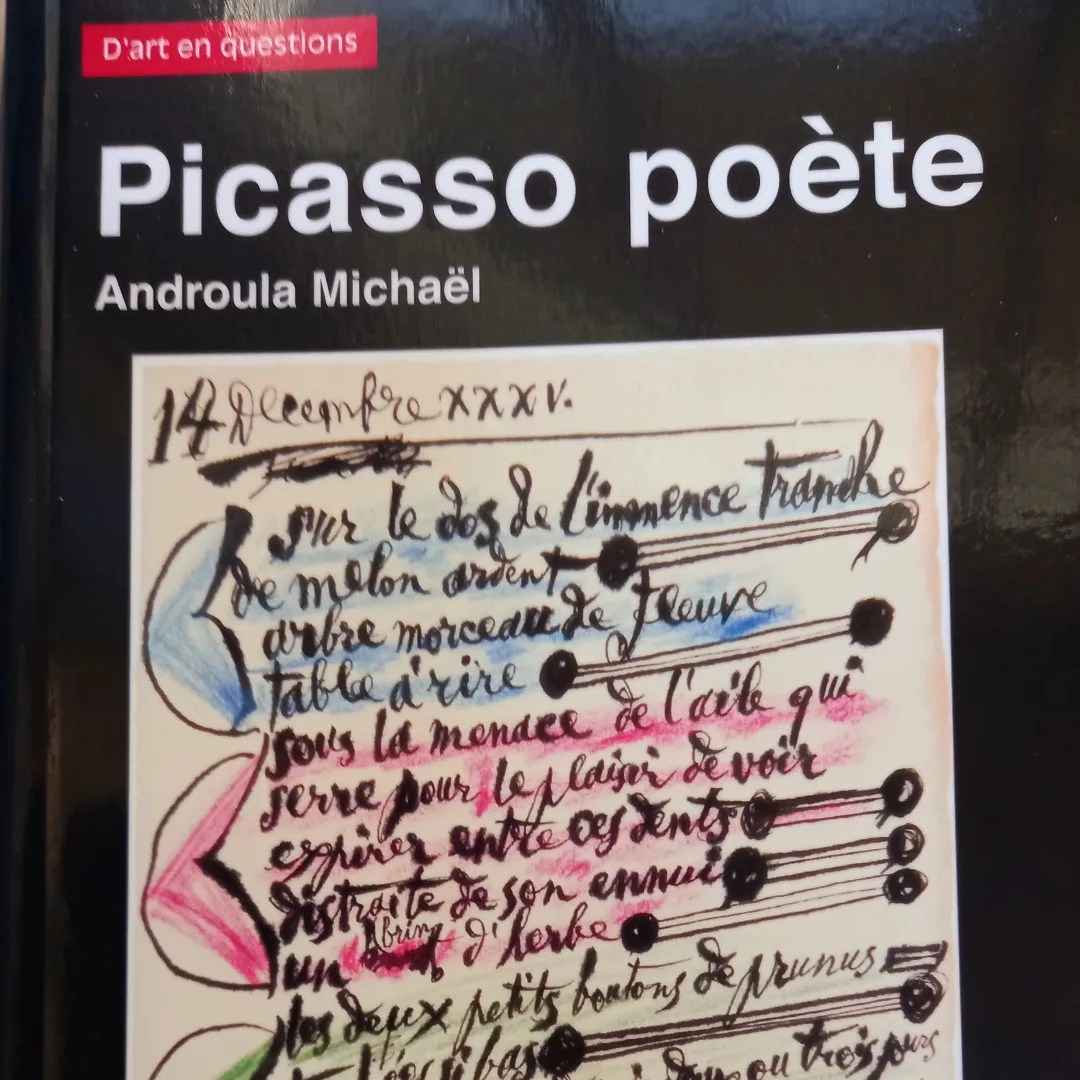 D'art en questions
Picasso poète
Androula Michaël
14 Decembre XXXV.
sur le dos de l'immence tranche
de melon ardent
arbre morceau de fleuve
table à rire
sous la menace de l'aile qui
serre pour le plaisir de voir
expirer entre ces dents
distraite de son ennui
un brin d'herbe
les deux petits boutons de prunus
deux ou trois jours